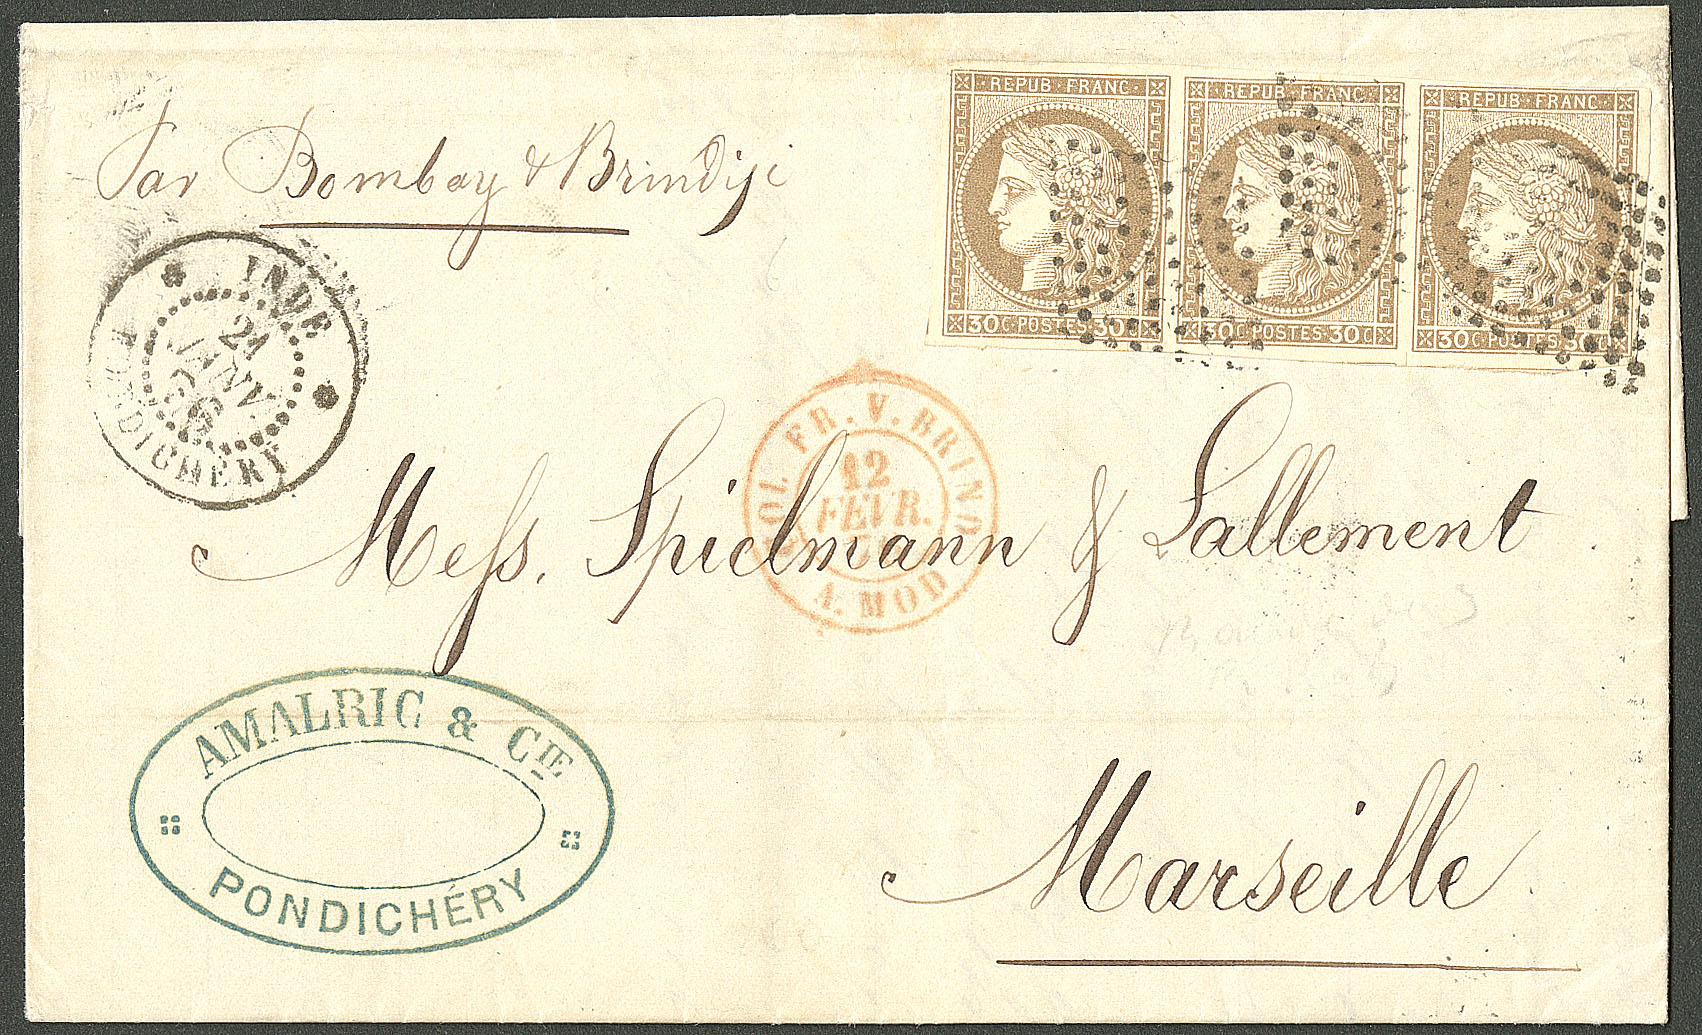 REPUB. FRANC.
30 C. POSTES 30 C
REPUB. FRANC.
30 C. POSTES 30 C
REPUB. FRANC.
30 C. POSTES 30 C
Par Bombay & Brindisi
INDE
21
JANV.
76
PONDICHÉRY
COL. FR. V. BRIND.
12
FÉVR.
A. MOD
Mess. Spielmann & Lallement
AMALRIC & CIE
PONDICHÉRY
Marseille